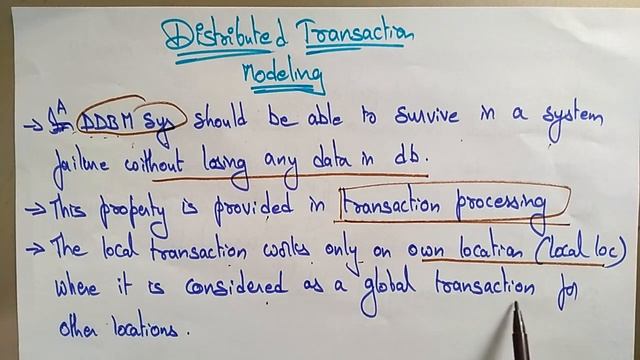 Distributed Transaction
Modeling
→ A DDBM Sys should be able to survive in a system
failure without losing any data in db.
→ This property is provided in transaction processing
→ The local transaction works only on own location (local loc)
where it is considered as a global transaction for
other locations.